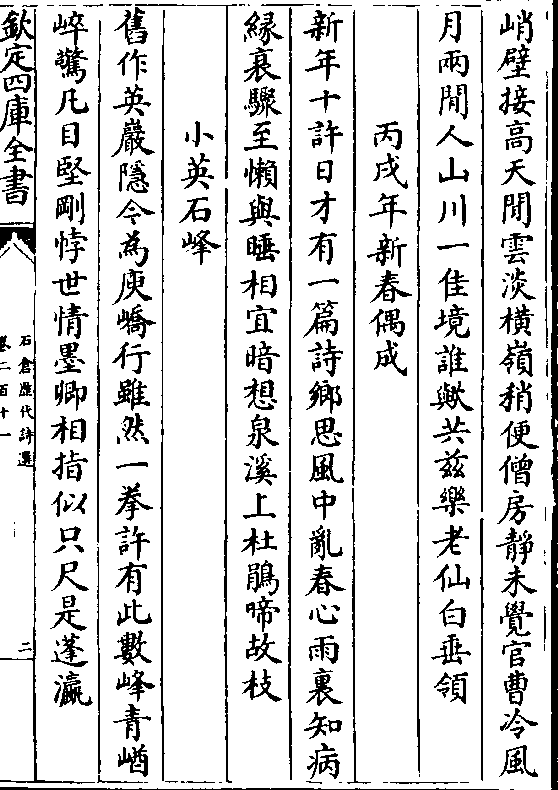 峭壁接高天閒雲淡橫嶺稍便僧房靜未覺官曹冷風
月兩閒人山川一佳境誰歟共兹樂老仙白垂領
丙戌年新春偶成
新年十許日才有一篇詩鄉思風中亂春心雨裏知病
緣衰驟至懶與睡相宜暗想泉溪上杜鵑啼故枝
小英石峰
舊作英巖隱今為庾嶠行雖然一拳許有此數峰青崷
崒驚凡目堅剛悖世情墨卿相指似只尺是蓬瀛
欽定四庫全書
石倉歷代詩選
卷二百十一
二